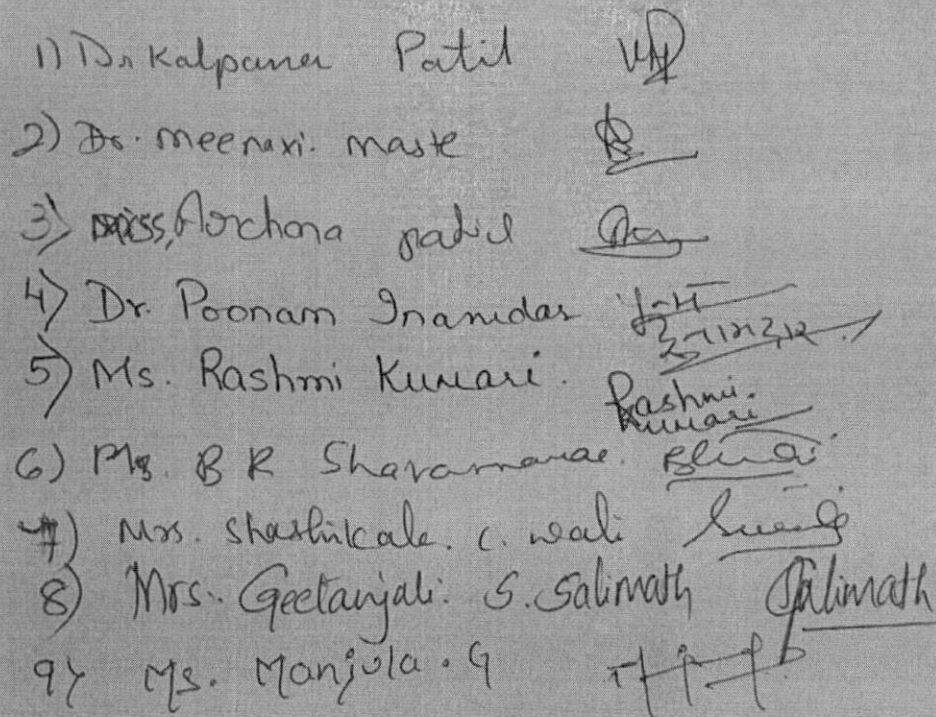 1) Dr Kalpana Patil
2) Dr. meenaxi. maste
3) miss, Archana patil
4) Dr. Poonam Inamdar
5) Ms. Rashmi Kumari. Rashmi. Kumari
6) Ms. B R
7) Mrs. Shashikala. C. wali
8) Mrs. Geetanjali. S. Salimath Salimath
9) Ms. Manjula. G